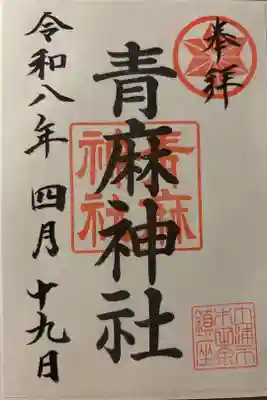 奉拝
青麻神社
青麻神社
令和八年 四月 十九日